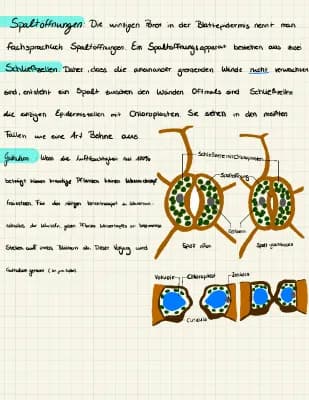 Spaltöffnungen: Die winzigen Poren in der Blattepidermis nennt man
fachsprachlich Spaltöffnungen. Ein Spaltöffnungsapparat bestehen aus zwei
Schließzellen. Daher, dass die aneinander grenzenden Wände nicht verwachsen
sind, entsteht ein Spalt zwischen den Wänden. Oftmals sind Schließzellen
die einzigen Epidermiszellen mit Chloroplasten. Sie sehen in den meisten
Fällen wie eine Art Bohne aus.
Guttation: Wenn die Luftfeuchtigkeit bei 100%
beträgt können Pflanzen keinen Wasserdampf
freisetzen. Für das
Pflanzen Wassertropfen an bestimmten
Stellen auf ihren Blättern ab. Dieser Vorgang wird
Guttation genannt
Schließzelle mit Chloroplasten
Spaltöffnung
Zellkern
Spalt offen
Spalt geschlossen
Vakuole
Chloroplast
Zellkern
Cuticula